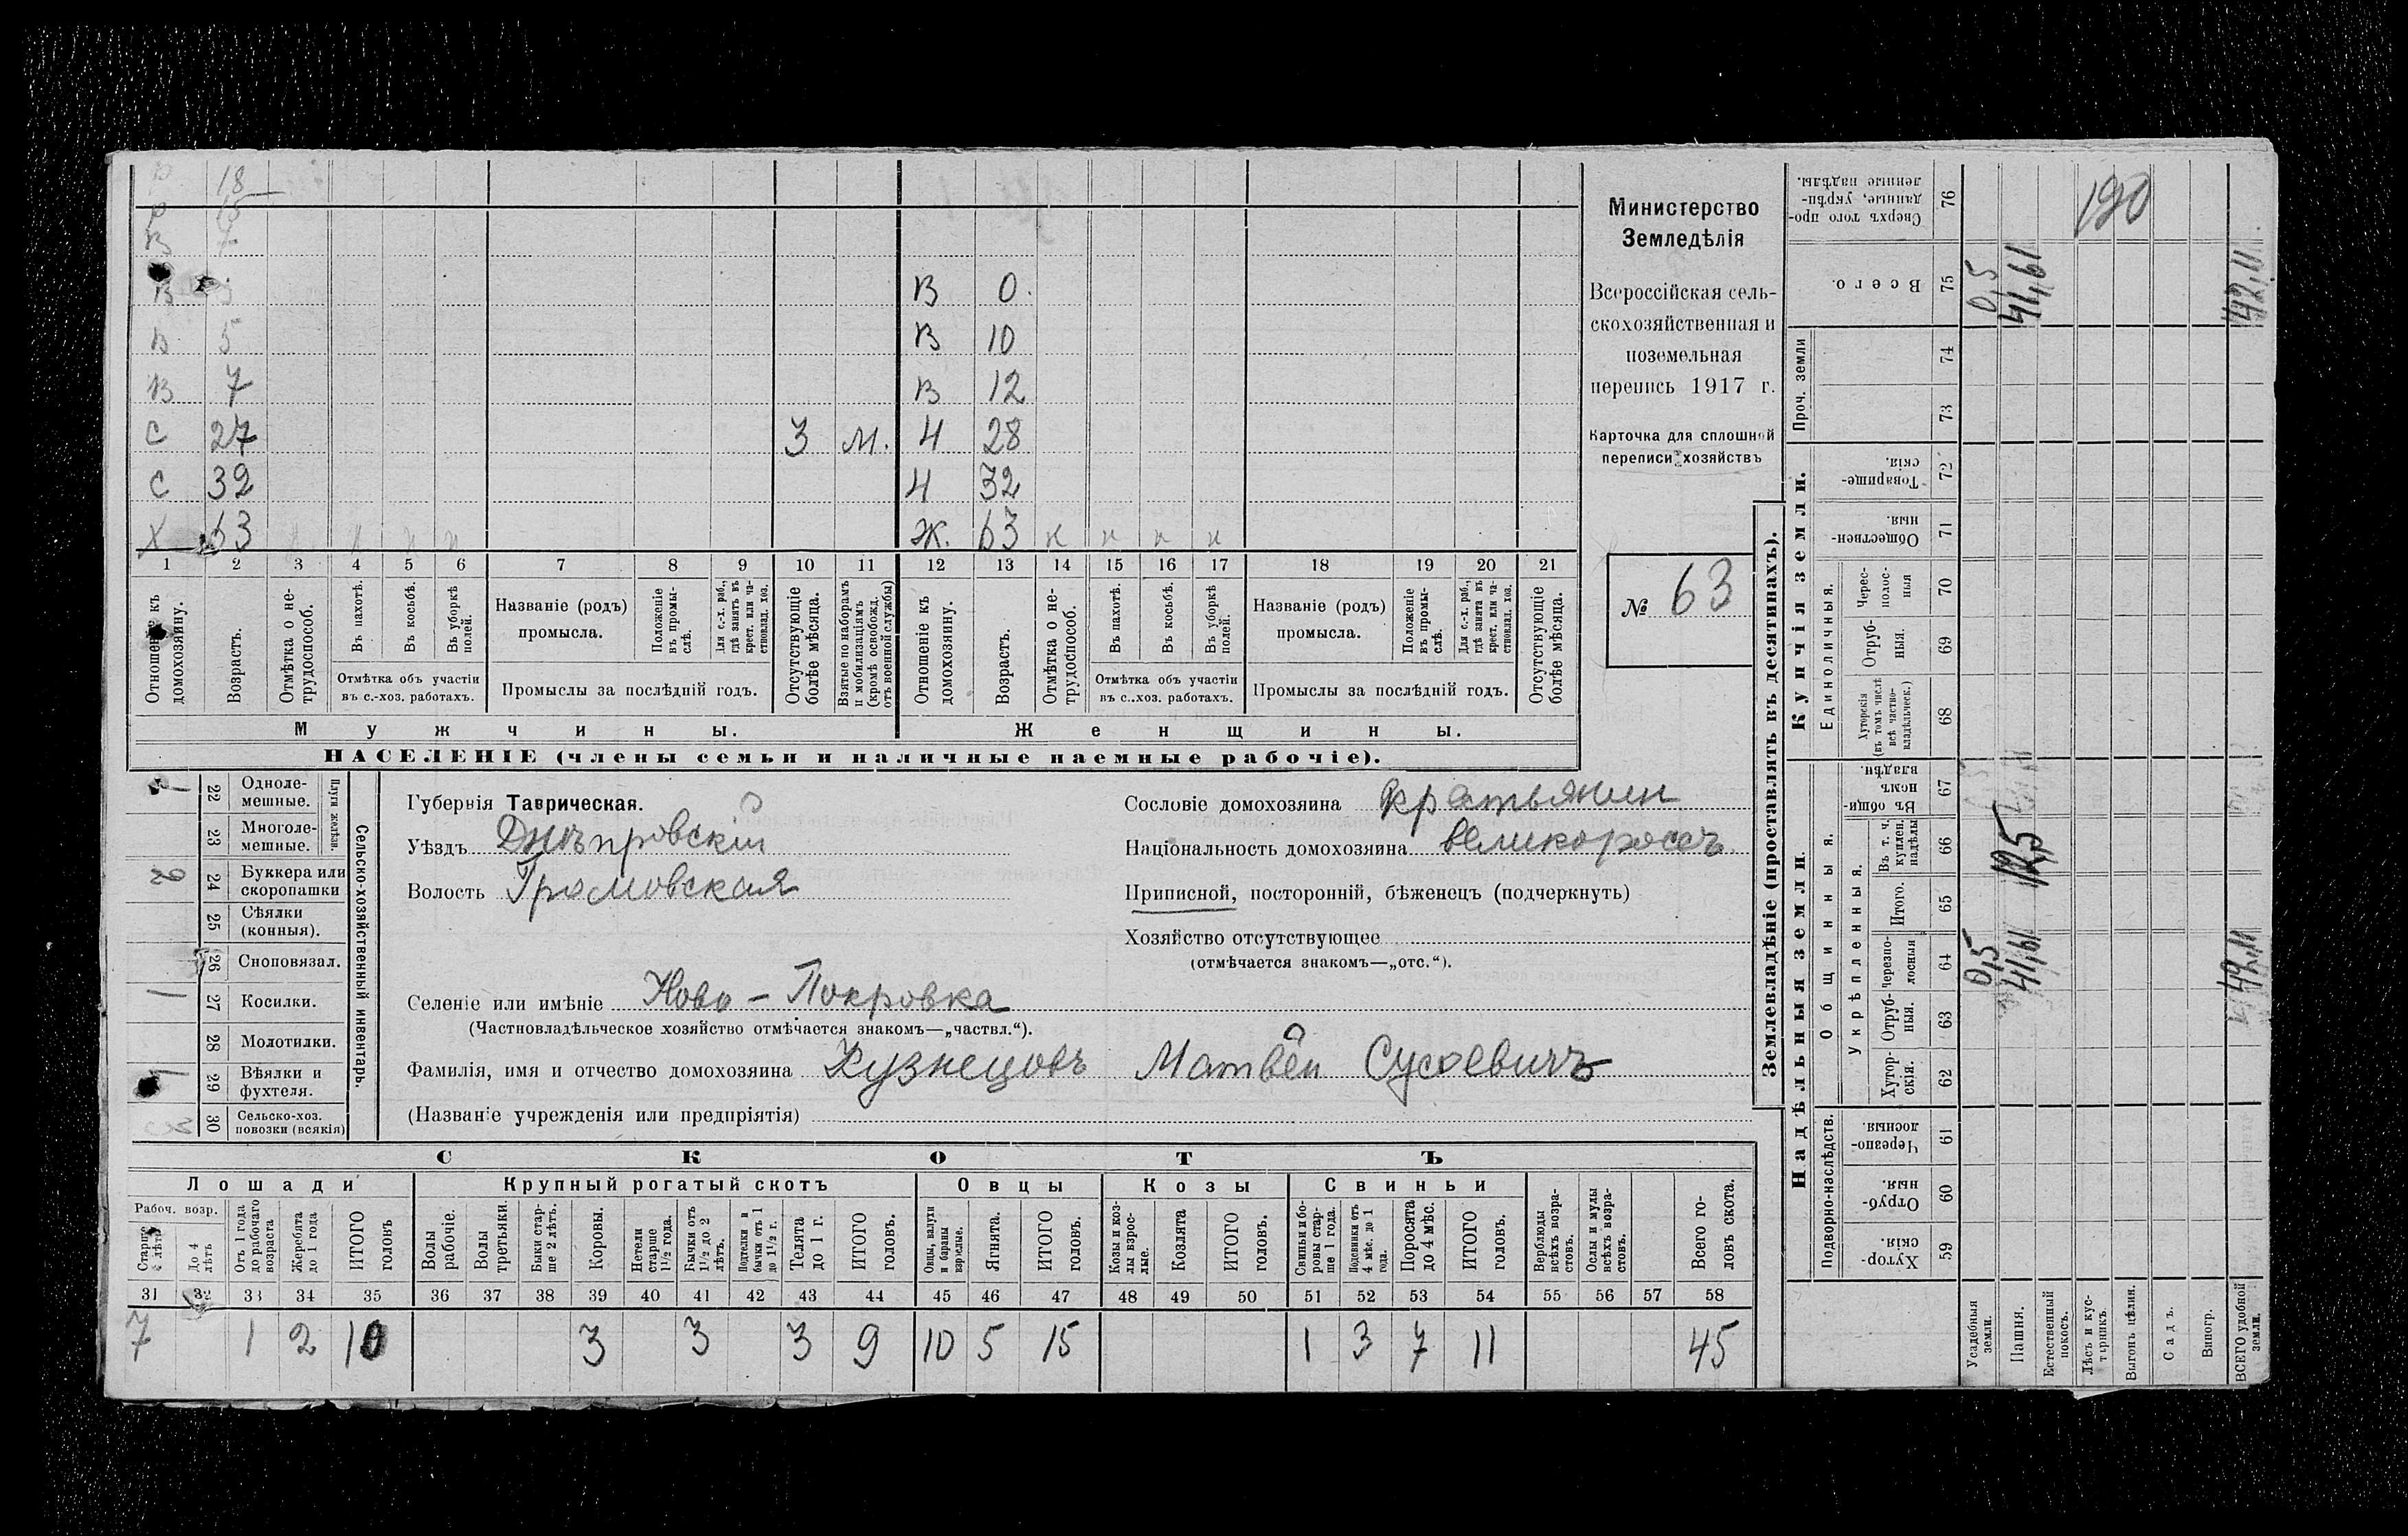 18
15
В 0.
В 5 В 10
В 7 В 12
С 27 3 м. Ч 28
С 32 Ч 32
Х 63 Ж. 63 н н н н
1 2 3 4 5 6 7 8 9 10 11 12 13 14 15 16 17 18 19 20 21
Отношеніе къ домохозяину.
Возрастъ.
Отмѣтка о нетрудоспособ.
Въ пахотѣ.
Въ косьбѣ.
Въ уборкѣ полей.
Отмѣтка объ участіи
въ с.-хоз. работахъ.
Названіе (родъ)
промысла.
Положеніе въ промыслѣ.
Для с.-х. раб., гдѣ занятъ въ крест. или частновлад. хоз.
Промыслы за послѣдній годъ.
Отсутствующіе болѣе мѣсяца.
Взятые по наборамъ и мобилизаціямъ (кромѣ освобожд. отъ военной службы)
Отношеніе къ домохозяину.
Возрастъ.
Отмѣтка о нетрудоспособ.
Въ пахотѣ.
Въ косьбѣ.
Въ уборкѣ полей.
Отмѣтка объ участіи
въ с..хоз. работахъ.
Названіе (родъ)
промысла.
Положеніе въ промыслѣ.
Для с.-х. раб., гдѣ занята въ крест. или частновлад. хоз.
Промыслы за послѣдній годъ.
Отсутствующіе болѣе мѣсяца.
Мужчины. Женщины.
НАСЕЛЕНІЕ (члены семьи и наличные наемные рабочіе).
Министерство
Земледѣлія
Всероссійская сель-
скохозяйственная и
поземельная
перепись 1917 г.
Карточка для сплошной
переписи хозяйствъ
№ 63
Сельско-хозяйственный инвентарь.
Плуги желѣзн.
22 Одноле-
мешные.
23 Многоле-
мешные.
2 24 Буккера или
скоропашки
25 Сѣялки
(конныя).
26 Сноповязал.
1 27 Косилки.
28 Молотилки.
1 29 Вѣялки и
фухтеля.
3 30 Сельско-хоз.
повозки (всякія)
Губернія Таврическая.
Уѣздъ Днѣпровскій
Волость Громовская
Селеніе или имѣніе Ново-Покровка
(Частновладѣльческое хозяйство отмѣчается знакомъ—„частвл.“).
Фамилія, имя и отчество домохозяина Кузнецовъ Матвѣй Сусоевичъ
(Названіе учрежденія или предпріятія)
Сословіе домохозяина крѣстьянин
Національность домохозяина великороссъ
Приписной, посторонній, бѣженецъ (подчеркнуть)
Хозяйство отсутствующее
(отмѣчается знакомъ—„отс.“).
СКОТЪ
Лошади Крупный рогатый скотъ Овцы Козы Свиньи
Рабоч. возр.
Старше 4 лѣтъ
До 4 лѣтъ
Отъ 1 года до рабочаго возраста
Жеребята до 1 года
ИТОГО головъ
Волы рабочіе.
Волы третьяки.
Быки старше 2 лѣтъ.
Коровы.
Нетели старше 1½ года.
Бычки отъ 1½ до 2 лѣтъ.
Подтелки и бычки отъ 1 до 1½ г.
Телята до 1 г.
ИТОГО головъ.
Овцы, валухи и бараны взрослые.
Ягнята.
ИТОГО головъ.
Козы и козлы взрослые.
Козлята
ИТОГО головъ.
Свиньи и боровы старше 1 года.
Подсвинки отъ 4 мѣс. до 1 года.
Поросята до 4 мѣс.
ИТОГО головъ.
Верблюды всѣхъ возрастовъ.
Ослы и мулы всѣхъ возрастовъ.
Всего головъ скота.
31 32 33 34 35 36 37 38 39 40 41 42 43 44 45 46 47 48 49 50 51 52 53 54 55 56 57 58
7 1 2 10 3 3 3 9 10 5 15 1 3 7 11 45
Землевладѣніе (проставлять въ десятинахъ).
Надѣльныя земли.
Купчія земли.
Подворно-наслѣдств.
Общинныя.
Укрѣпленныя.
Единоличныя.
Проч. земли
Сверхъ того проданные, укрѣпленные надѣлы. 76 190
Всего. 75 0,5 41,61 42,11.
74
73
Товарищескія. 72
Общественныя. 71
Черезполосныя 70
Отрубныя. 69
Хуторскія (въ томъ числѣ всѣ частновладѣльческ.) 68
Въ общинномъ владѣн. 67
Въ т. ч. куплен. надѣлы 66 12,5
Итого. 65
Черезполосныя 64 0,5 41,61 42,11
Отрубныя. 63
Хуторскія. 62
Черезполосныя. 61
Отрубныя. 60
Хуторскія. 59
Усадебныя земли.
Пашня.
Естественный покосъ.
Лѣсъ и кустарникъ.
Выгонъ цѣлин.
Садъ.
Виногр.
ВСЕГО удобной земли.